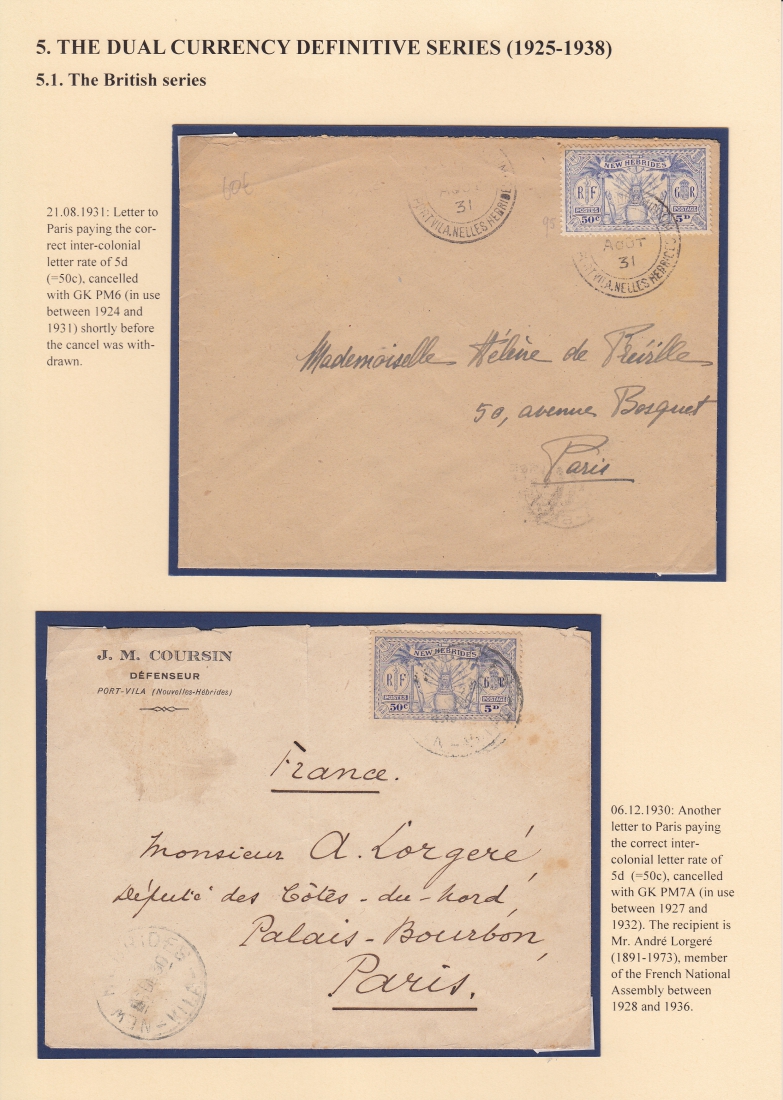 5. THE DUAL CURRENCY DEFINITIVE SERIES (1925-1938)
5.1. The British series
21.08.1931: Letter to
Paris paying the cor-
rect inter-colonial
letter rate of 5d
(=50c), cancelled
with GK PM6 (in use
between 1924 and
1931) shortly before
the cancel was with-
drawn.
60€
AOUT
31
PORT VILA.NELLES HEBRIDES
NEW HEBRIDES
R F
G R
POSTES
POSTAGE
50c
5D
95
AOUT
31
PORT VILA.NELLES HEBRIDES
Mademoiselle Hélène de Préville
50, avenue Bosquet
Paris
J. M. COURSIN
DÉFENSEUR
PORT-VILA (Nouvelles-Hébrides)
NEW HEBRIDES
R F
G R
POSTES
POSTAGE
50c
5D
France.
Monsieur A. Lorgeré,
Député des Côtes-du-Nord,
Palais-Bourbon,
Paris.
VILA - NEW HEBRIDES
06.12.1930: Another
letter to Paris paying
the correct inter-
colonial letter rate of
5d (=50c), cancelled
with GK PM7A (in use
between 1927 and
1932). The recipient is
Mr. André Lorgeré
(1891-1973), member
of the French National
Assembly between
1928 and 1936.